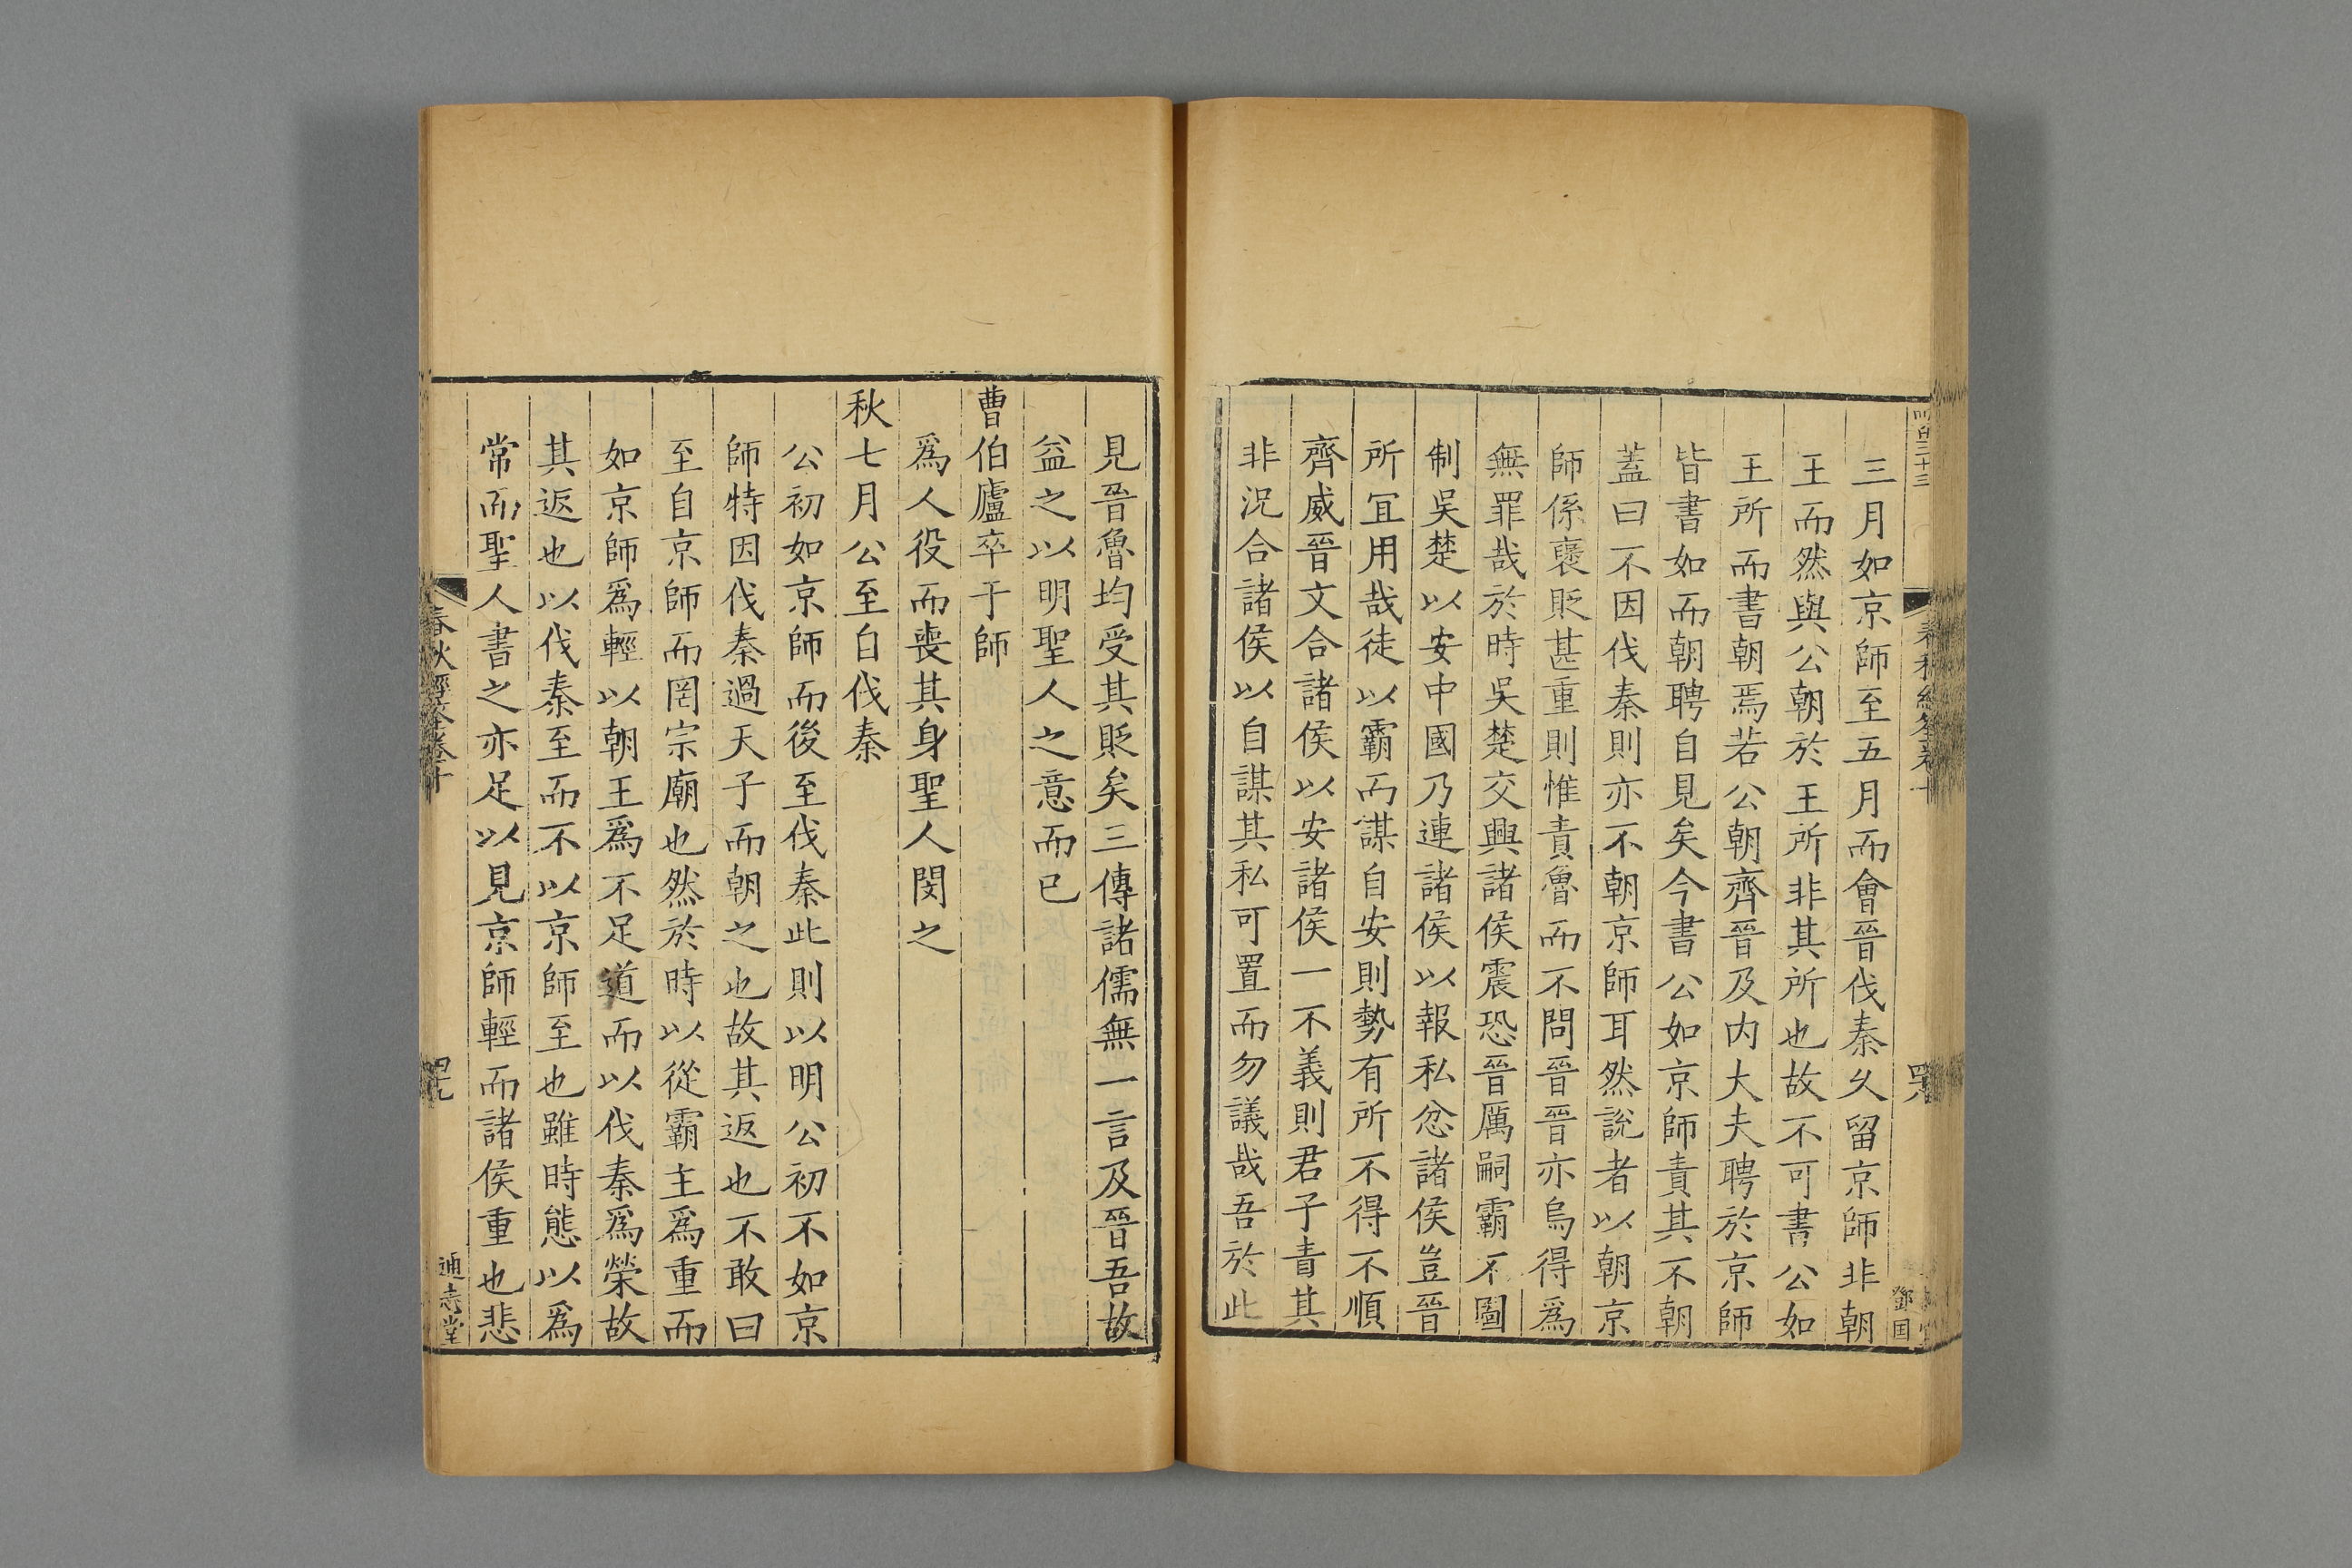 三月如京師至五月而會晉伐秦久留京師非朝
王而然與公朝於王所非其所也故不可書公如
王所而書朝焉若公朝齊晉及內大夫聘於京師
皆書如而朝聘自見矣今書公如京師責其不朝
蓋曰不因伐秦則亦不朝京師耳然說者以朝京
師係褒貶甚重則惟責魯而不問晉晉亦烏得爲
無罪哉於時吳楚交興諸侯震恐晉厲嗣霸不圖
制吳楚以安中國乃連諸侯以報私忿諸侯豈晉
所宜用哉徒以霸而謀自安則勢有所不得不順
齊威晉文合諸侯以安諸侯一不義則君子責其
非況合諸侯以自謀其私可置而勿議哉吾於此
見晉魯均受其貶矣三傳諸儒無一言及晉吾故
益之以明聖人之意而已
曹伯廬卒于師
爲人役而喪其身聖人閔之
秋七月公至自伐秦
公初如京師而後至伐秦此則以明公初不如京
師特因伐秦過天子而朝之也故其返也不敢曰
至自京師而罔宗廟也然於時以從霸主爲重而
如京師爲輕以朝王爲不足道而以伐秦爲榮故
其返也以伐秦至而不以京師至也雖時態以爲
常而聖人書之亦足以見京師輕而諸侯重也悲
春秋經筌卷十
通志堂